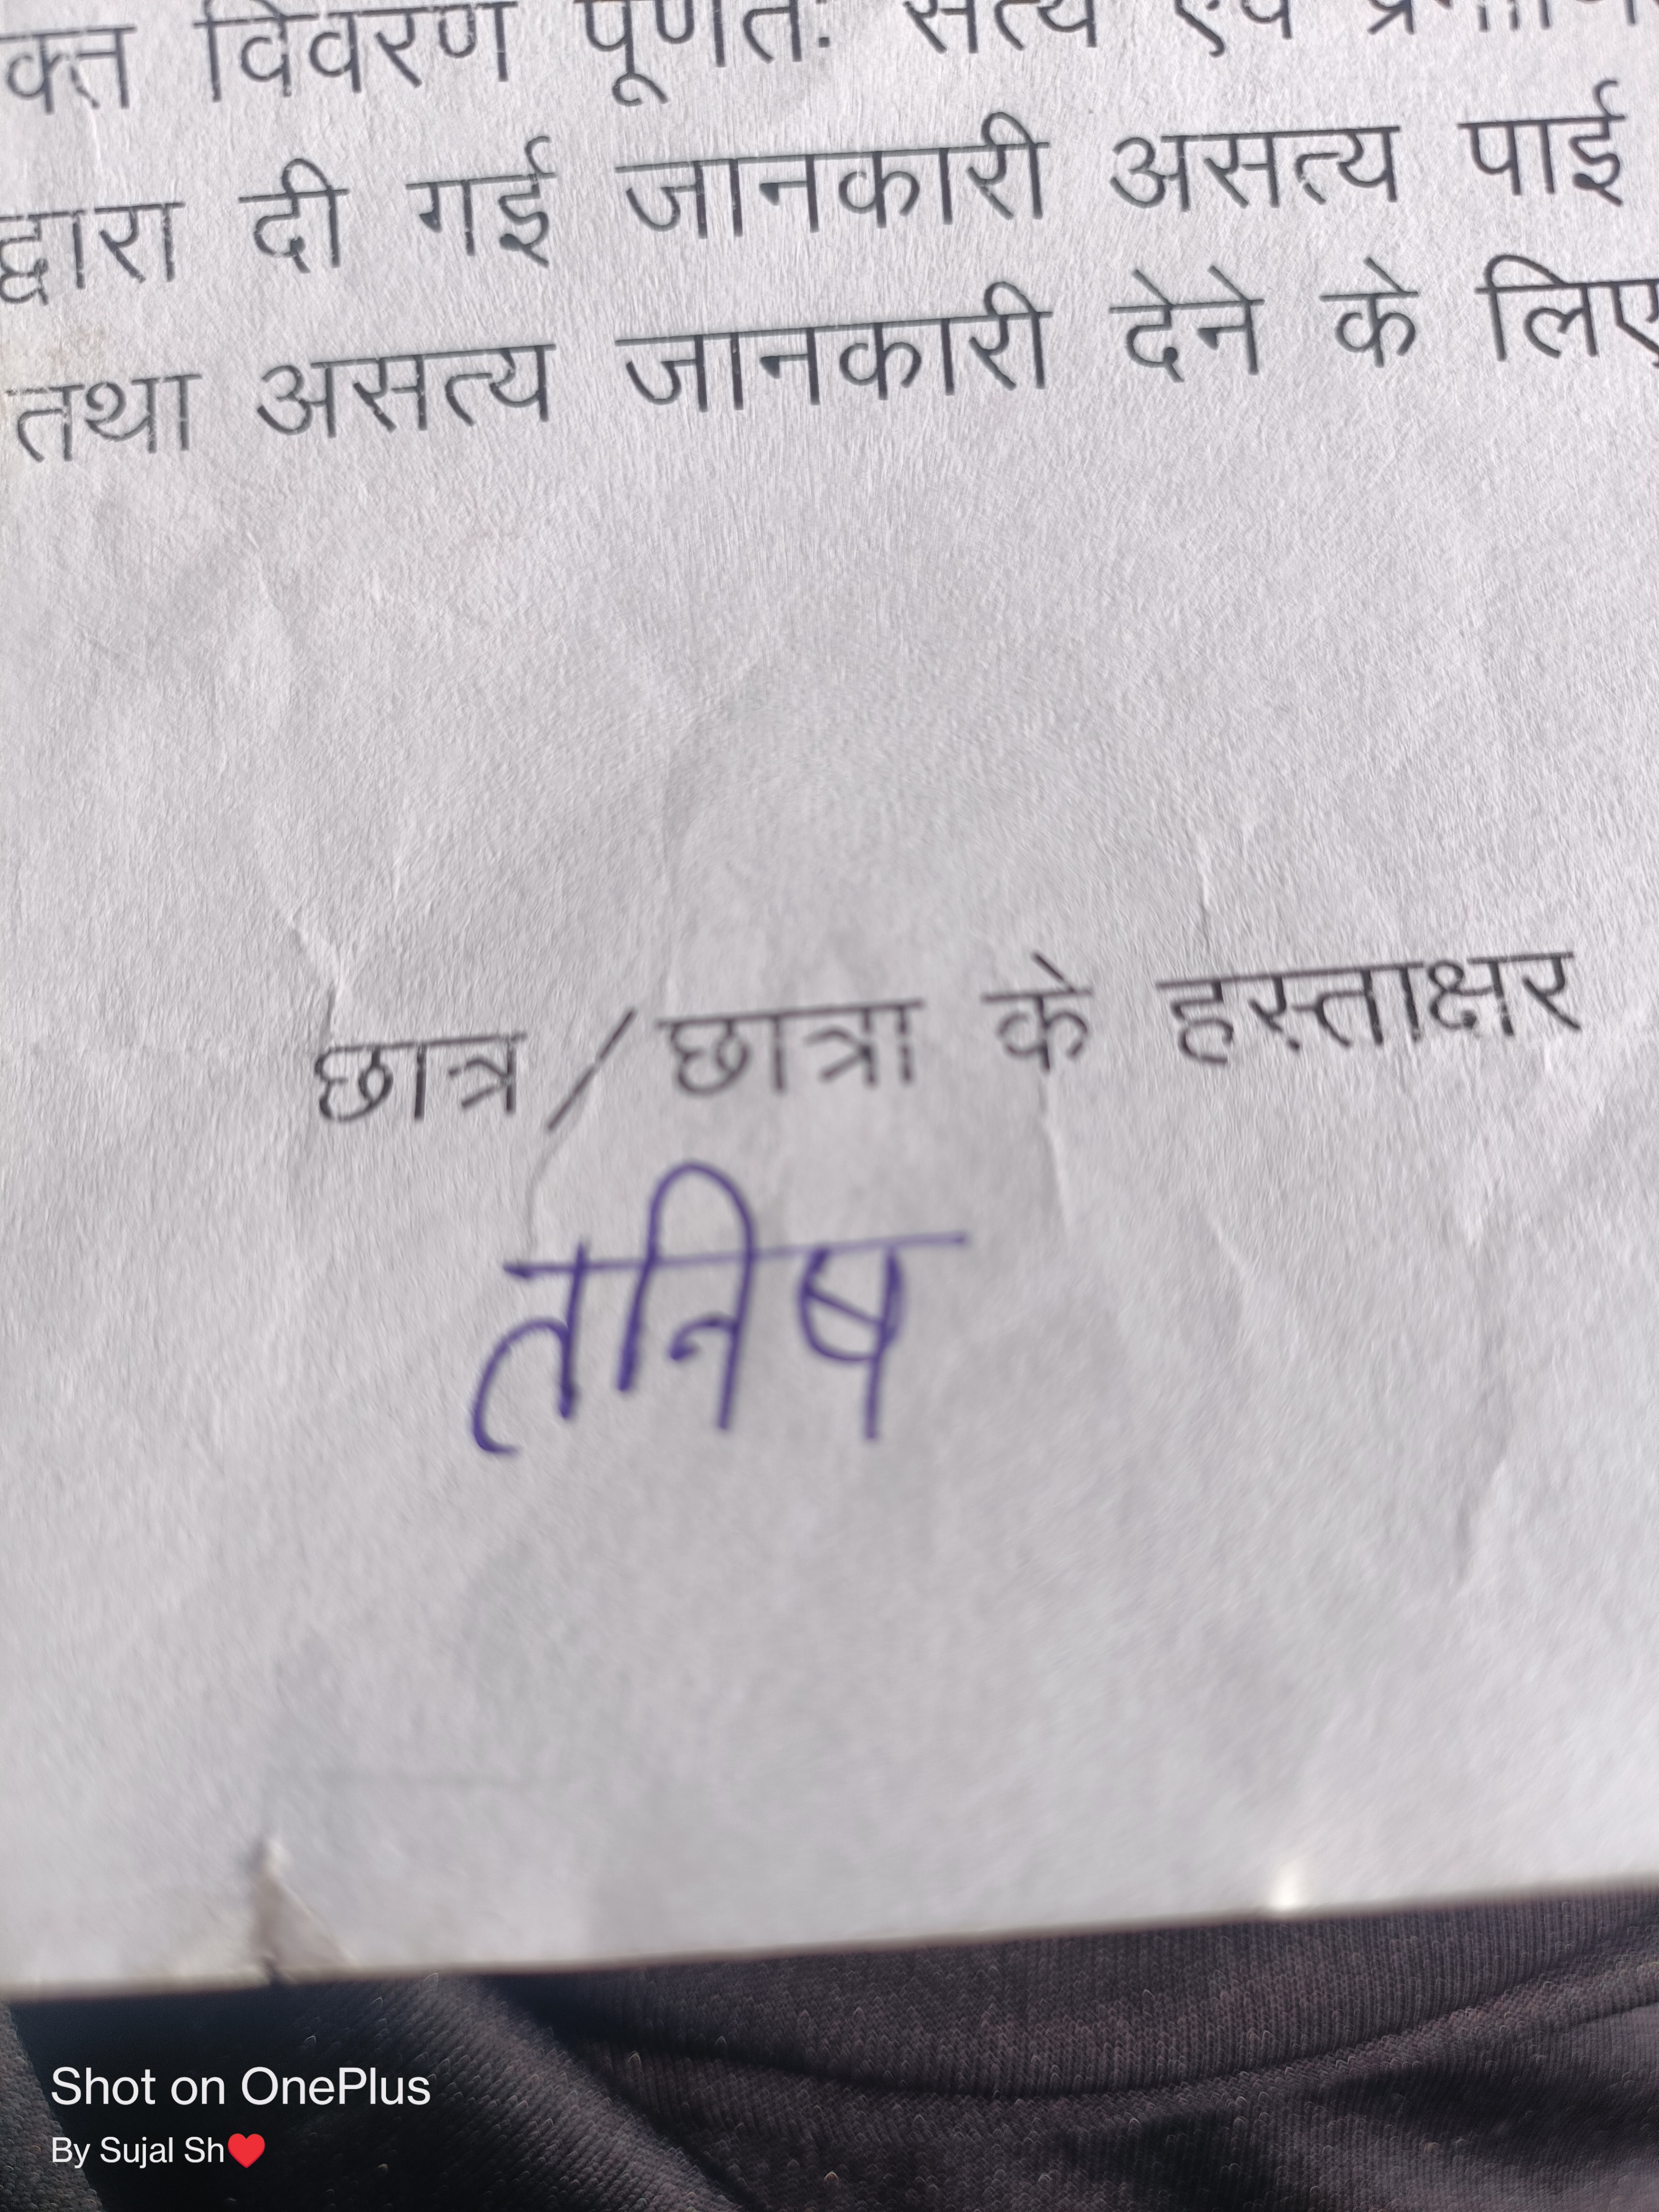 क्त विवरण पूर्णतः सत्य एवं
द्वारा दी गई जानकारी असत्य पाई
तथा असत्य जानकारी देने के लिए
छात्र / छात्रा के हस्ताक्षर
तनिष
Shot on OnePlus
By Sujal Sh❤️